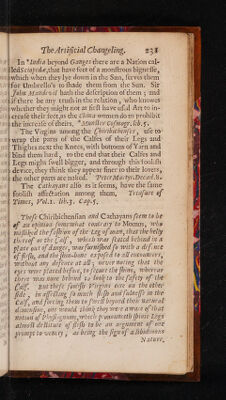 The Artificial Changeling. 231
In *India beyond Ganges there are a Nation cal-
led Sciopedæ, that have feet of a monstrous bignesse,
which when they lye down in the Sun, serves them
for Umbrello's to shade them from the Sun. Sir
John Mandevil hath the description of them; and
if there be any truth in the relation, who knowes
whether they might not at first have used Art to in-
crease their feet, as the China women do to prohibit
the increase of theirs, *Munster Cosmogr. lib. 5.
The Virgins among the Chiribichenses, use to
wrap the parts of the Calfes of their Legs and
Thighes next the Knees, with bottoms of Yarn and
bind them hard, to the end that their Calfes and
Legs might swell bigger, and through this foolish
device, they think they appear finer to their lovers,
the other parts are naked. Peter Martyr. Decad. 8.
The Cathayans also as it seems, have the same
foolish affectation among them. Treasure of
Times, Vol. 2. lib. 3. Cap. 5.
These Chiribichensian and Cathayans seem to be
of an opinion somewhat contrary to Momus, who
mislik'd the fashion of the Leg of man, that the belly
thereof or the Calf, which was seated behind in a
place out of danger, was furnished so with a defence
of flesh, and the shin-bone exposed to all encounters,
without any defence at all; never noting that the
eyes were placed before, to secure the shins, whereas
there was none behind to look to the safety of the
Calf. But these foolish Virgins erre on the other
side, in affecting so much flesh and fulnesse in the
Calf, and forcing them to swell beyond their natural
dimensions, one would think they were aware of that
notion of Physiognomy, which pronounceth spare Legs
almost destitute of flesh to be an argument of one
prompt to venery, as being the sign of a libidinous
Nature,